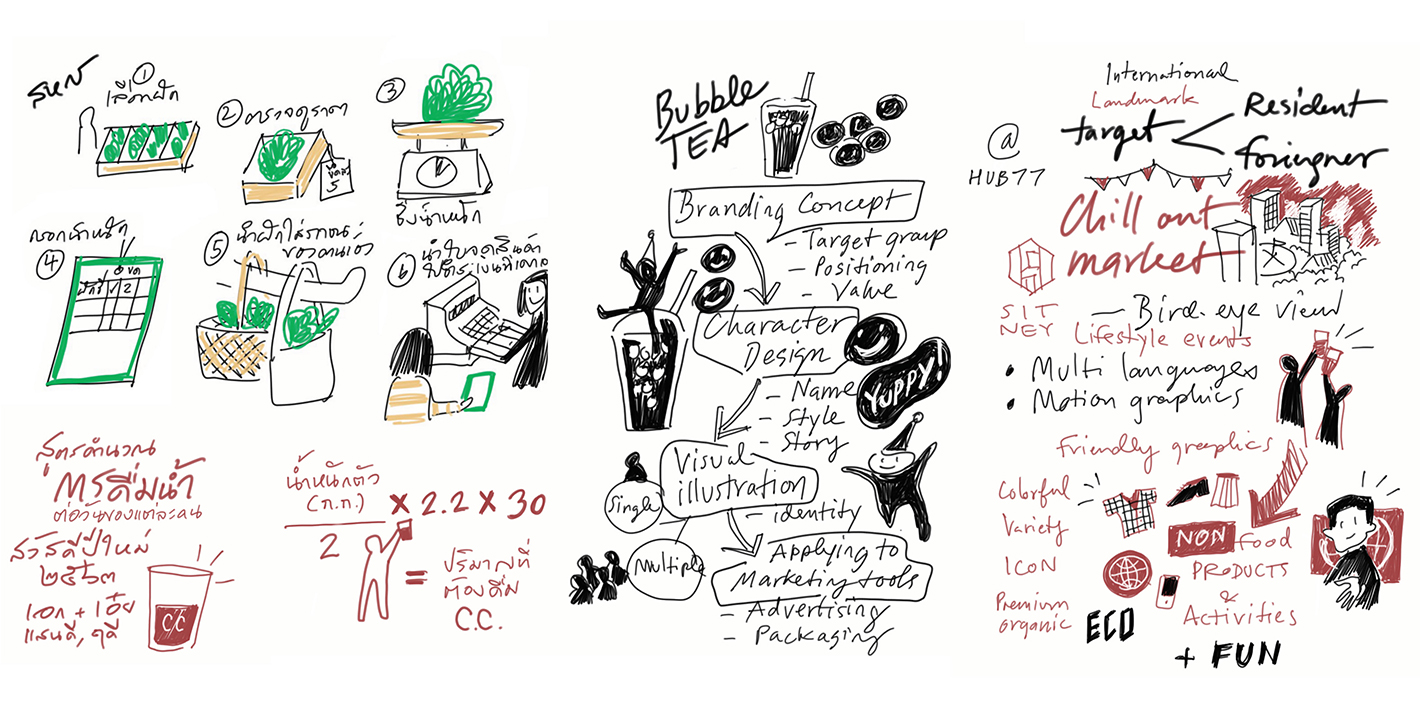 ①
เลือกผัก
② ตรวจดูราคา
ขีด
5
③
ชั่งน้ำหนัก
④
⑤ นำผักใส่
⑥
สูตรคำนวณ
การดื่มน้ำ
ต่อวันของแต่ละคน
สวัสดีปีใหม่
๒๕๖๓
เอก + เอ๋ย
แสนดี,
C/C
น้ำหนักตัว
(ก.ก.)
2
× 2.2 × 30
= ปริมาณที่
ต้องดื่ม
C.C.
Bubble
TEA
Branding Concept
- Target group
- Positioning
- Value
Character
Design
- Name
- Style
- Story
YUPPY!
Visual
illustration
- identity
Single
Multiple
Applying to
Marketing tools
- Advertising
- Packaging
International
Landmark
@
HUB77
target < Resident
Foriegner
Chill out
market
SIT
NEY
- Bird-eye view
Lifestyle events
• Multi languages
• Motion graphics
Friendly greaphics
Colorful
Variety
ICON
Premium
organic
ECO
NON food
PRODUCTS
&
Activities
+ FUN